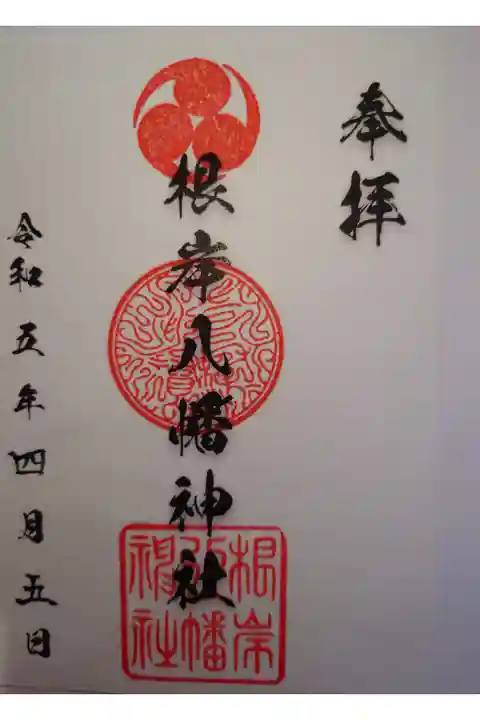 奉拝
根岸八幡神社
根岸
八幡
神社
令和五年四月五日